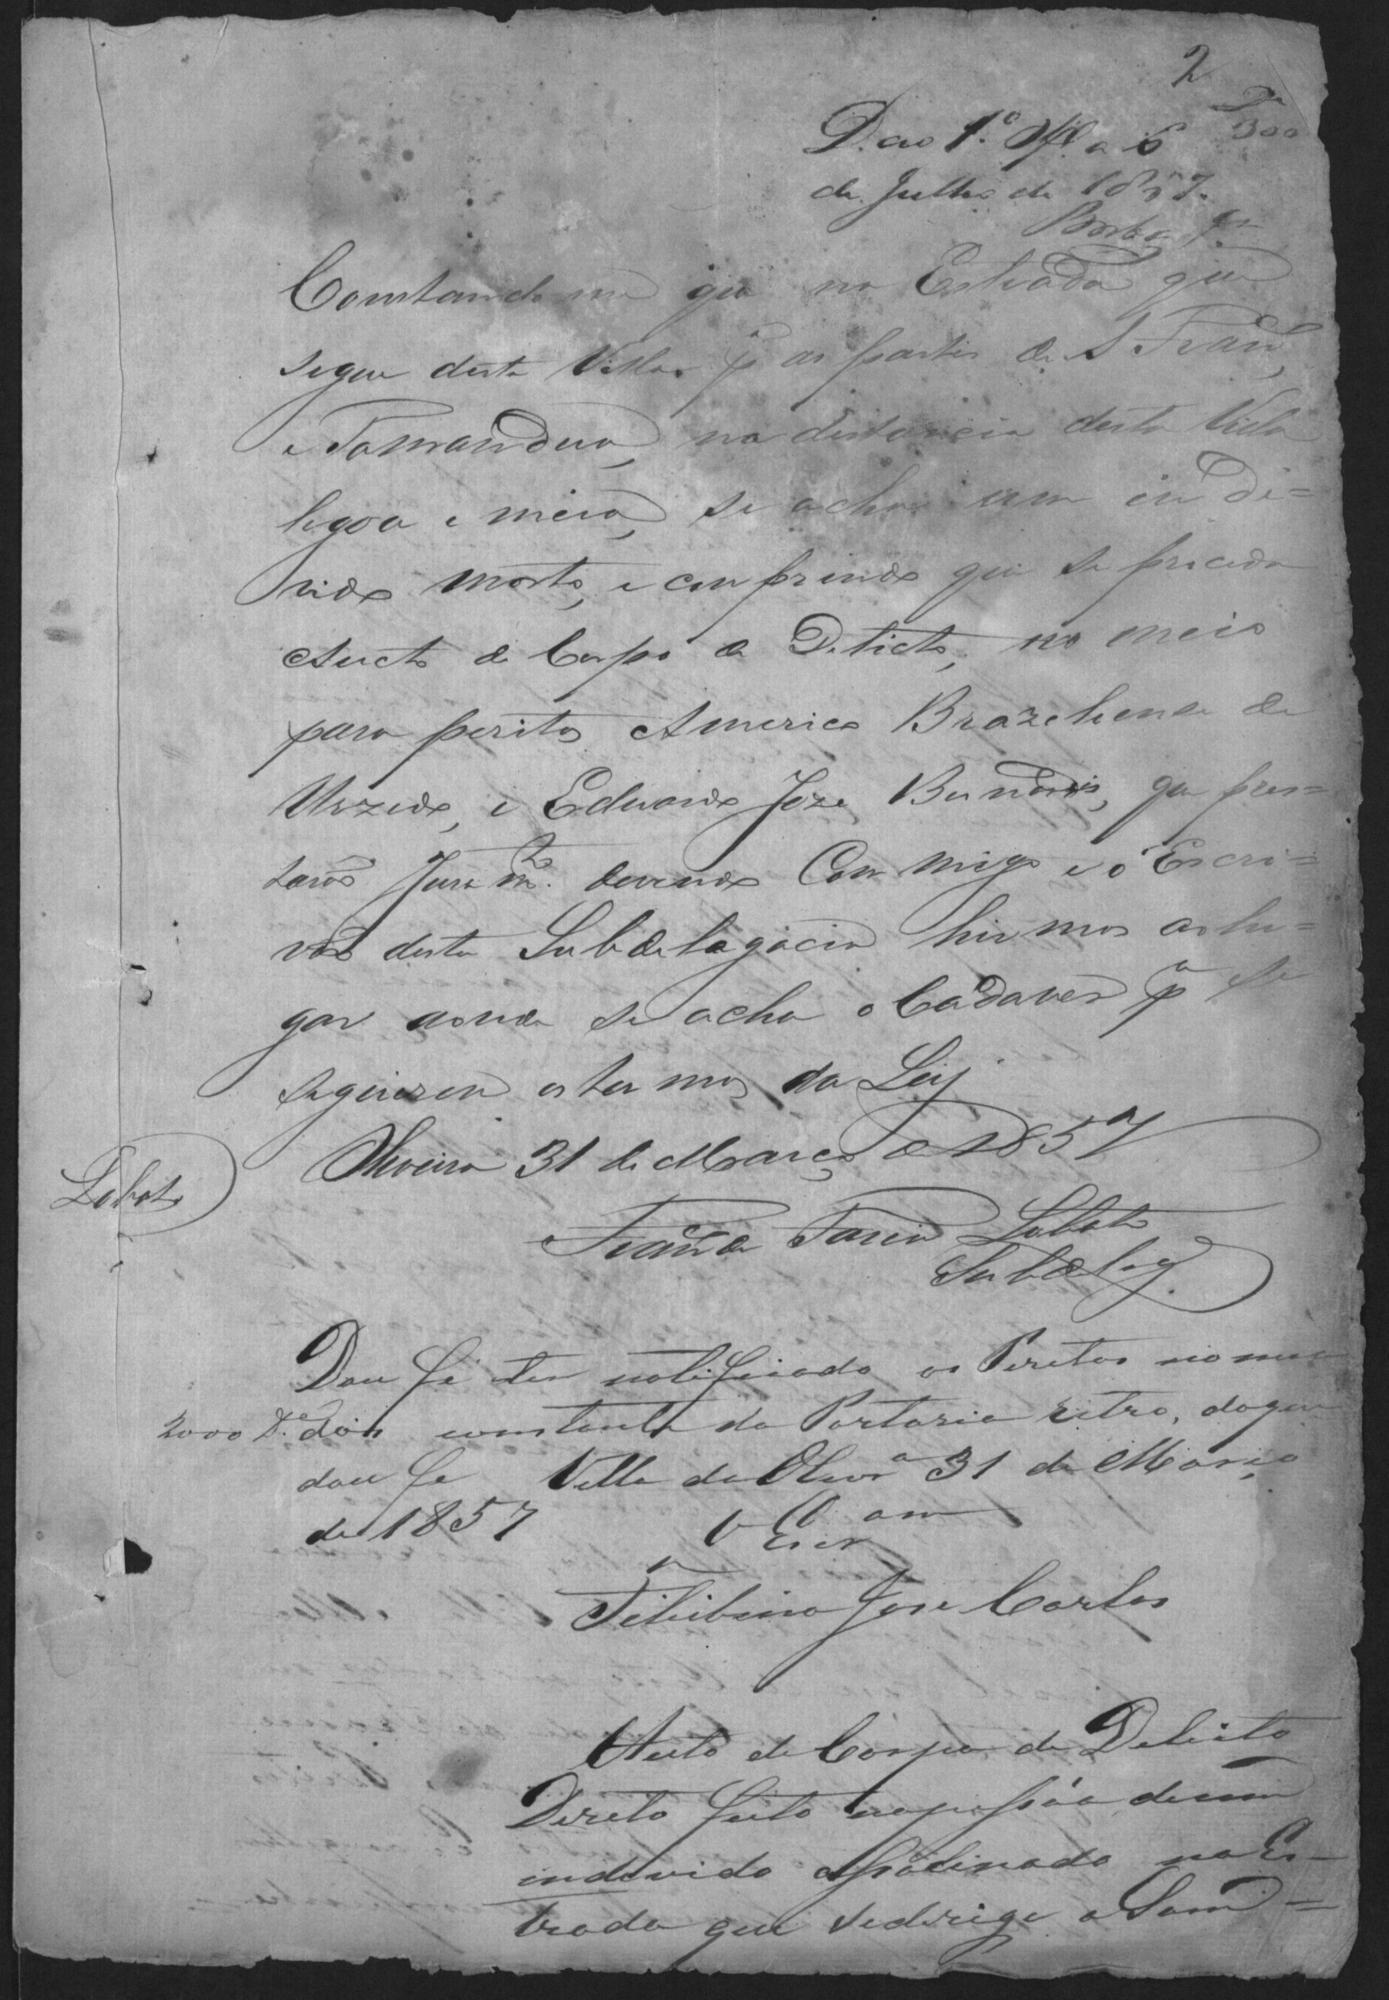 2
D. ao 1.º Off.º a 6
300
de Julho de 1857.
Constando me que na Estrada que
segue desta Villa pª as partes de S Franco,
e Tamandua, na distancia desta Villa
legoa e meia, se acha um indi=
viduo morto, e cumprindo que se proceda
Aucto de Corpo de Delicto, no meio
para peritos Americo Brazeliense de
Urzedo, e Eduardo Joze Bernardes, que pres=
tarão Juramto. devendo Com migo e o Escri=
vão desta Subdelagacia hirmos ao lu=
gar aonde se acha o Cadaver pª se
seguirem os termos da Lei
Oliveira 31 de Março de 1857
Lobato
Franco de Faria Lobato
Subdeleg.
Dou fé ter notificado os Peretos nomea
2000 D.º dos constante da Portaria retro, do que
dou fe Villa de Olivrª 31 de Março
de 1857
O Escr
Felisbino Jose Carlos
Auto de Corpo de Delicto
Direto feito na pessôa de um
individo assacinado na Es=
trada que sedirige a Sam=